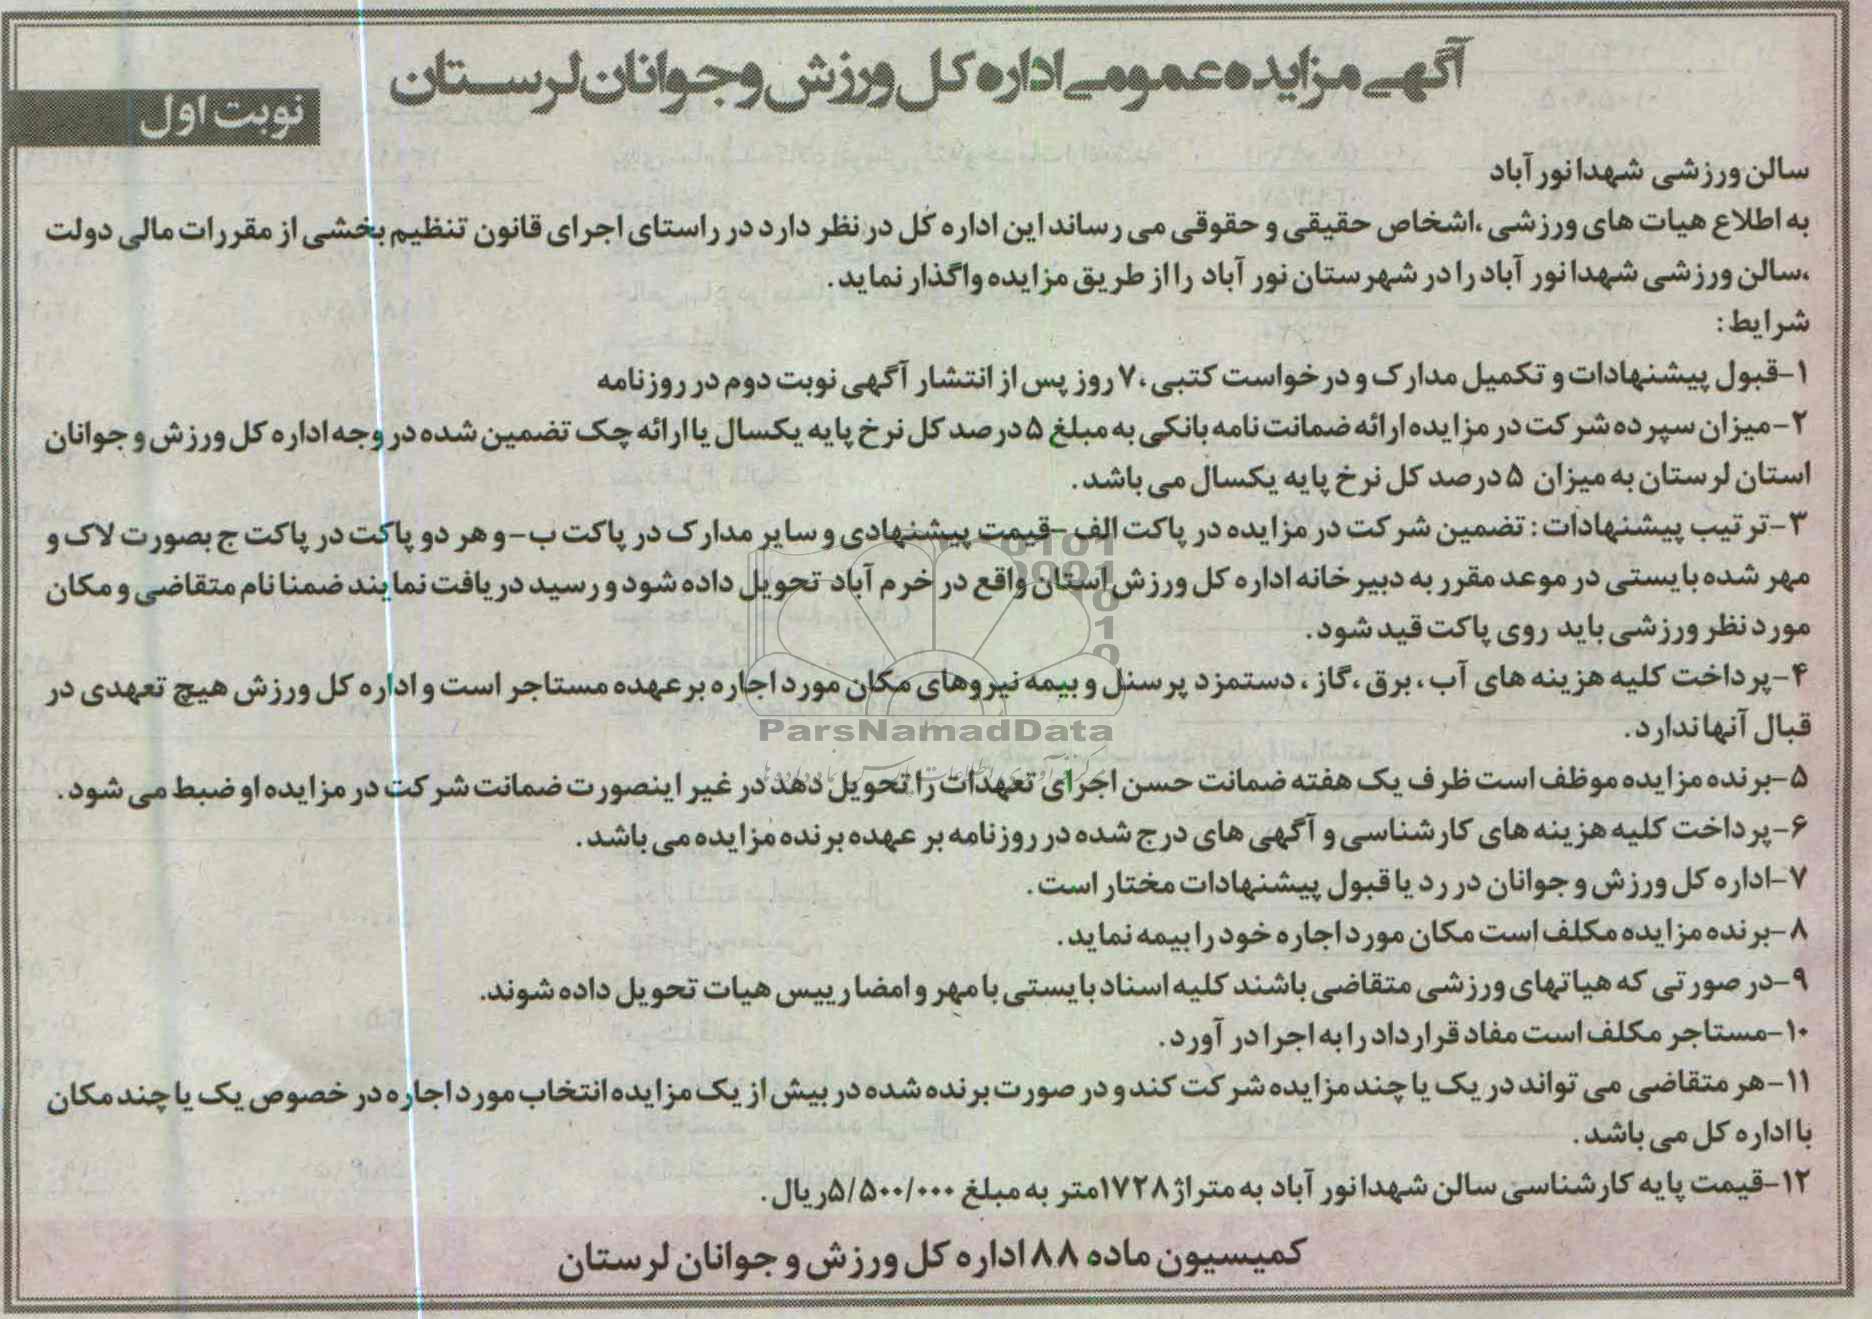 آگهی مزایده عمومی اداره کل ورزش و جوانان لرستان
نوبت اول
سالن ورزشی شهدا نور آباد
به اطلاع هیات های ورزشی ،اشخاص حقیقی و حقوقی می رساند این اداره کل در نظر دارد در راستای اجرای قانون تنظیم بخشی از مقررات مالی دولت
،سالن ورزشی شهدا نور آباد را در شهرستان نور آباد را از طریق مزایده واگذار نماید.
شرایط:
۱-قبول پیشنهادات و تکمیل مدارک و درخواست کتبی ،۷ روز پس از انتشار آگهی نوبت دوم در روزنامه
۲-میزان سپرده شرکت در مزایده ارائه ضمانت نامه بانکی به مبلغ ۵ درصد کل نرخ پایه یکسال یا ارائه چک تضمین شده در وجه اداره کل ورزش و جوانان
استان لرستان به میزان ۵ درصد کل نرخ پایه یکسال می باشد.
۳-ترتیب پیشنهادات: تضمین شرکت در مزایده در پاکت الف-قیمت پیشنهادی و سایر مدارک در پاکت ب-و هر دو پاکت در پاکت ج بصورت لاک و
مهر شده بایستی در موعد مقرر به دبیرخانه اداره کل ورزش استان واقع در خرم آباد تحویل داده شود و رسید دریافت نمایند ضمنا نام متقاضی و مکان
مورد نظر ورزشی باید روی پاکت قید شود.
۴-پرداخت کلیه هزینه های آب، برق ،گاز، دستمزد پرسنل و بیمه نیروهای مکان مورد اجاره بر عهده مستاجر است و اداره کل ورزش هیچ تعهدی در
قبال آنها ندارد.
ParsNamadData
۵-برنده مزایده موظف است ظرف یک هفته ضمانت حسن اجرای تعهدات را تحویل دهد در غیر اینصورت ضمانت شرکت در مزایده او ضبط می شود.
۶-پرداخت کلیه هزینه های کارشناسی و آگهی های درج شده در روزنامه بر عهده برنده مزایده می باشد.
۷-اداره کل ورزش و جوانان در رد یا قبول پیشنهادات مختار است.
۸-برنده مزایده مکلف است مکان مورد اجاره خود را بیمه نماید.
۹-در صورتی که هیاتهای ورزشی متقاضی باشند کلیه اسناد بایستی با مهر و امضا رییس هیات تحویل داده شوند.
۱۰-مستاجر مکلف است مفاد قرارداد را به اجرا در آورد.
۱۱-هر متقاضی می تواند در یک یا چند مزایده شرکت کند و در صورت برنده شده در بیش از یک مزایده انتخاب مورد اجاره در خصوص یک یا چند مکان
با اداره کل می باشد.
۱۲-قیمت پایه کارشناسی سالن شهدا نور آباد به متراژ ۱۷۲۸متر به مبلغ ۵/۵۰۰/۰۰۰ریال.
کمیسیون ماده ۸۸ اداره کل ورزش و جوانان لرستان